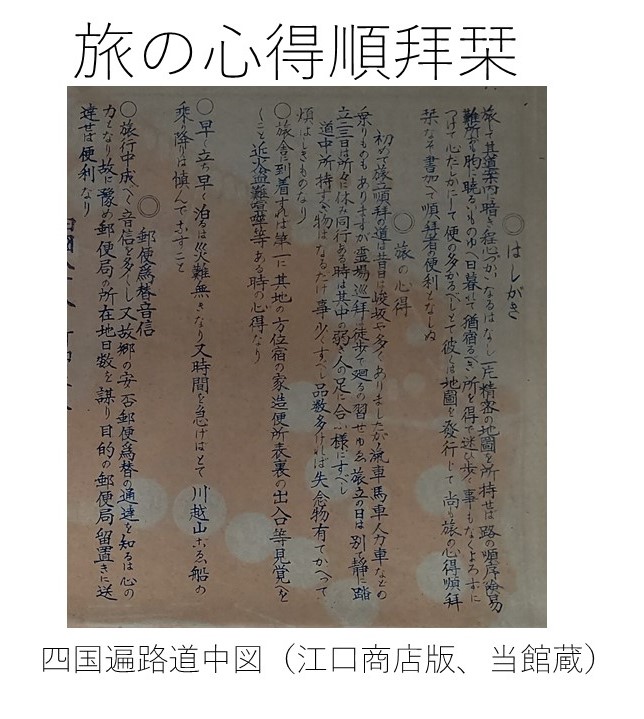 旅の心得順拝栞
◯はしがき
旅して其道案内暗き程心づかいなるはなし一片精密の地圖を所持せば路の順序険易
難所も胸に暁るいものゆへ日暮れて猶宿るべき所を得で迷ひ歩く事もなくよろずに
つけて心たしかにして便の多かるべしとて彼是地圖を發行して尚も旅の心得順拜
栞なぞ書加へて順拜者の便利となしぬ
◯旅の心得
初めて旅立順拜の道は昔日は峻坂や多くありましたが滊車馬車人力車などの
乗りものもありますが霊場巡拜は徒歩で廻るの習せゆゑ旅立の日は別て静に踏
立二三日は所々に休み同行ある時は其中の弱き人の足に合ふ様にすべし
道中所持すべき物はなるたけ事少くすべし品数多ければ失念物有てかへって
煩はしきものなり
◯旅舎に到着すれは第一に其地の方位宿の家造便所表裏の出入等見覚へを
くこと近火盗難喧𠵅等ある時の心得なり
◯早く立ち早く泊るは災難無きなり又時間を急げばとて川越山ごゑ船の
乗り降りは慎んでなすこと
◎郵便為替音信
◯旅行中成べく音信を多くし又故郷の安否郵便為替の通達を知るは心の
力となり故に豫め郵便局の所在地日数を謀り目的の郵便局留置きに送
達せば便利なり
四国遍路道中図（江口商店版、当館蔵）